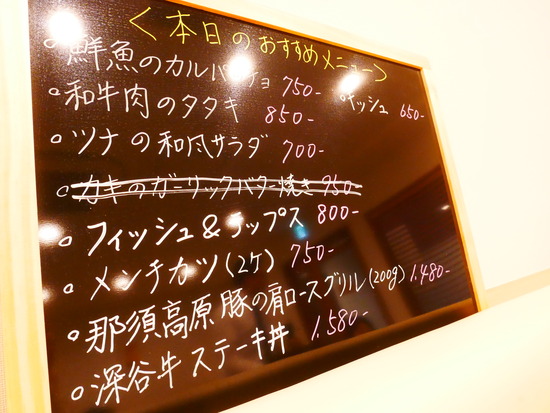 ＜本日のおすすめメニュー＞
○鮮魚のカルパッチョ 750-
○和牛肉のタタキ 850-
キッシュ 650-
○ツナの和風サラダ 700-
○カキのガーリックバター焼き 750-
○フィッシュ&チップス 800-
○メンチカツ(2ケ) 750-
○那須高原豚の肩ロースグリル(200g) 1.480-
○深谷牛ステーキ丼 1.580-